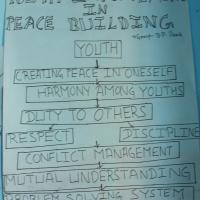 IN
PEACE BUILDING
YOUTH
CREATING PEACE IN ONESELF
HARMONY AMONG YOUTHS
DUTY TO OTHERS
RESPECT DISCIPLINE
CONFLICT MANAGEMENT
MUTUAL UNDERSTANDING
PROBLEM SOLVING SYSTEM